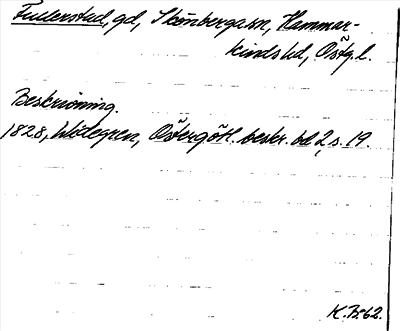 Fullerstad, gd, Skönberga sn, Hammar-
kinds hd, Östg.l.
Beskrivning.
1828, Widegren, Östergötl. beskr. bd 2, s. 19.
K.B:62.